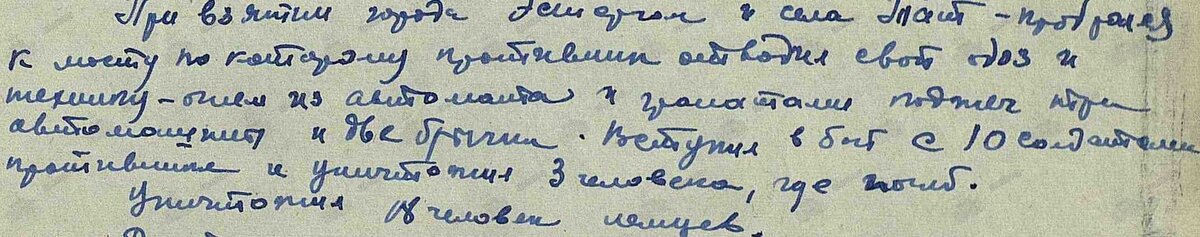 При взятии города Эстергом и села Тат - пробрался
к мосту по которому противник отводил свой обоз и
технику - огнем из автомата и гранатами поджег три
автомашины и две брички. Вступил в бой с 10 солдатами
противника и уничтожил 3 человека, где погиб.
Уничтожил 18 человек немцев.